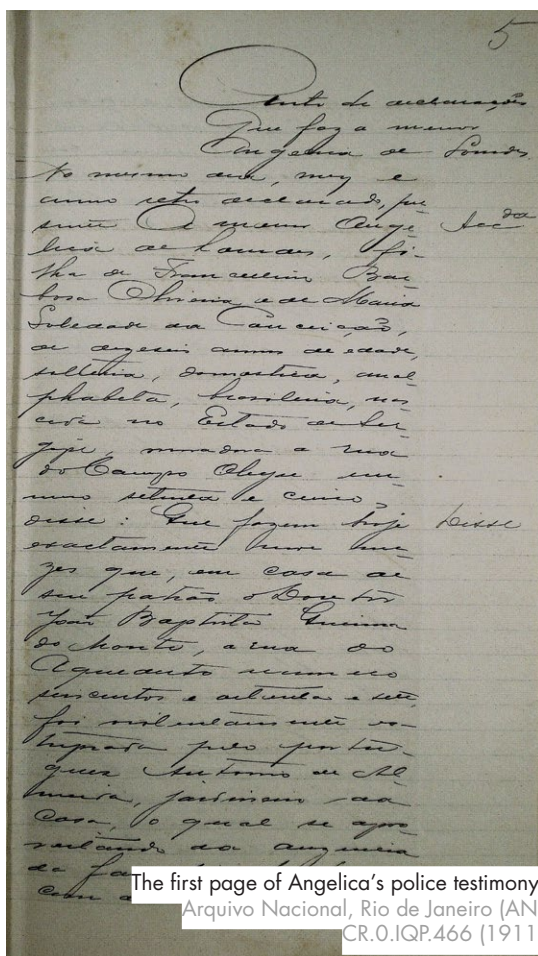 5
Auto de declarações
Que faz a menor
Angelica de Lourdes
No mesmo dia, mez e
anno retro declarado, pre-
sente A menor Ange-
lica de Lourdes, fi-
lha de Francelino Bar-
bosa Oliveira e de Maria
Soledade da Conceição,
de dezeseis annos de edade,
solteira, domestica, anal-
phabeta, brasileira, nas-
cida no Estado de Ser-
gipe, moradora a rua
do Campo Alegre nu-
mero setenta e cinco,
disse: Que fazem hoje Disse
exactamente nove me-
zes que, em casa de
seu patrão o Doutor
João Baptista
do Monte, a rua do
Aqueducto numero
seiscentos e oitenta e sete,
foi violentamente es-
tuprada pelo portu-
guez Antonio de Al-
meida, jardineiro da
casa, o qual se apro-
veitando da auzencia
da
com
The first page of Angelica's police testimony
Arquivo Nacional, Rio de Janeiro (AN
CR.0.IQP.466 (1911